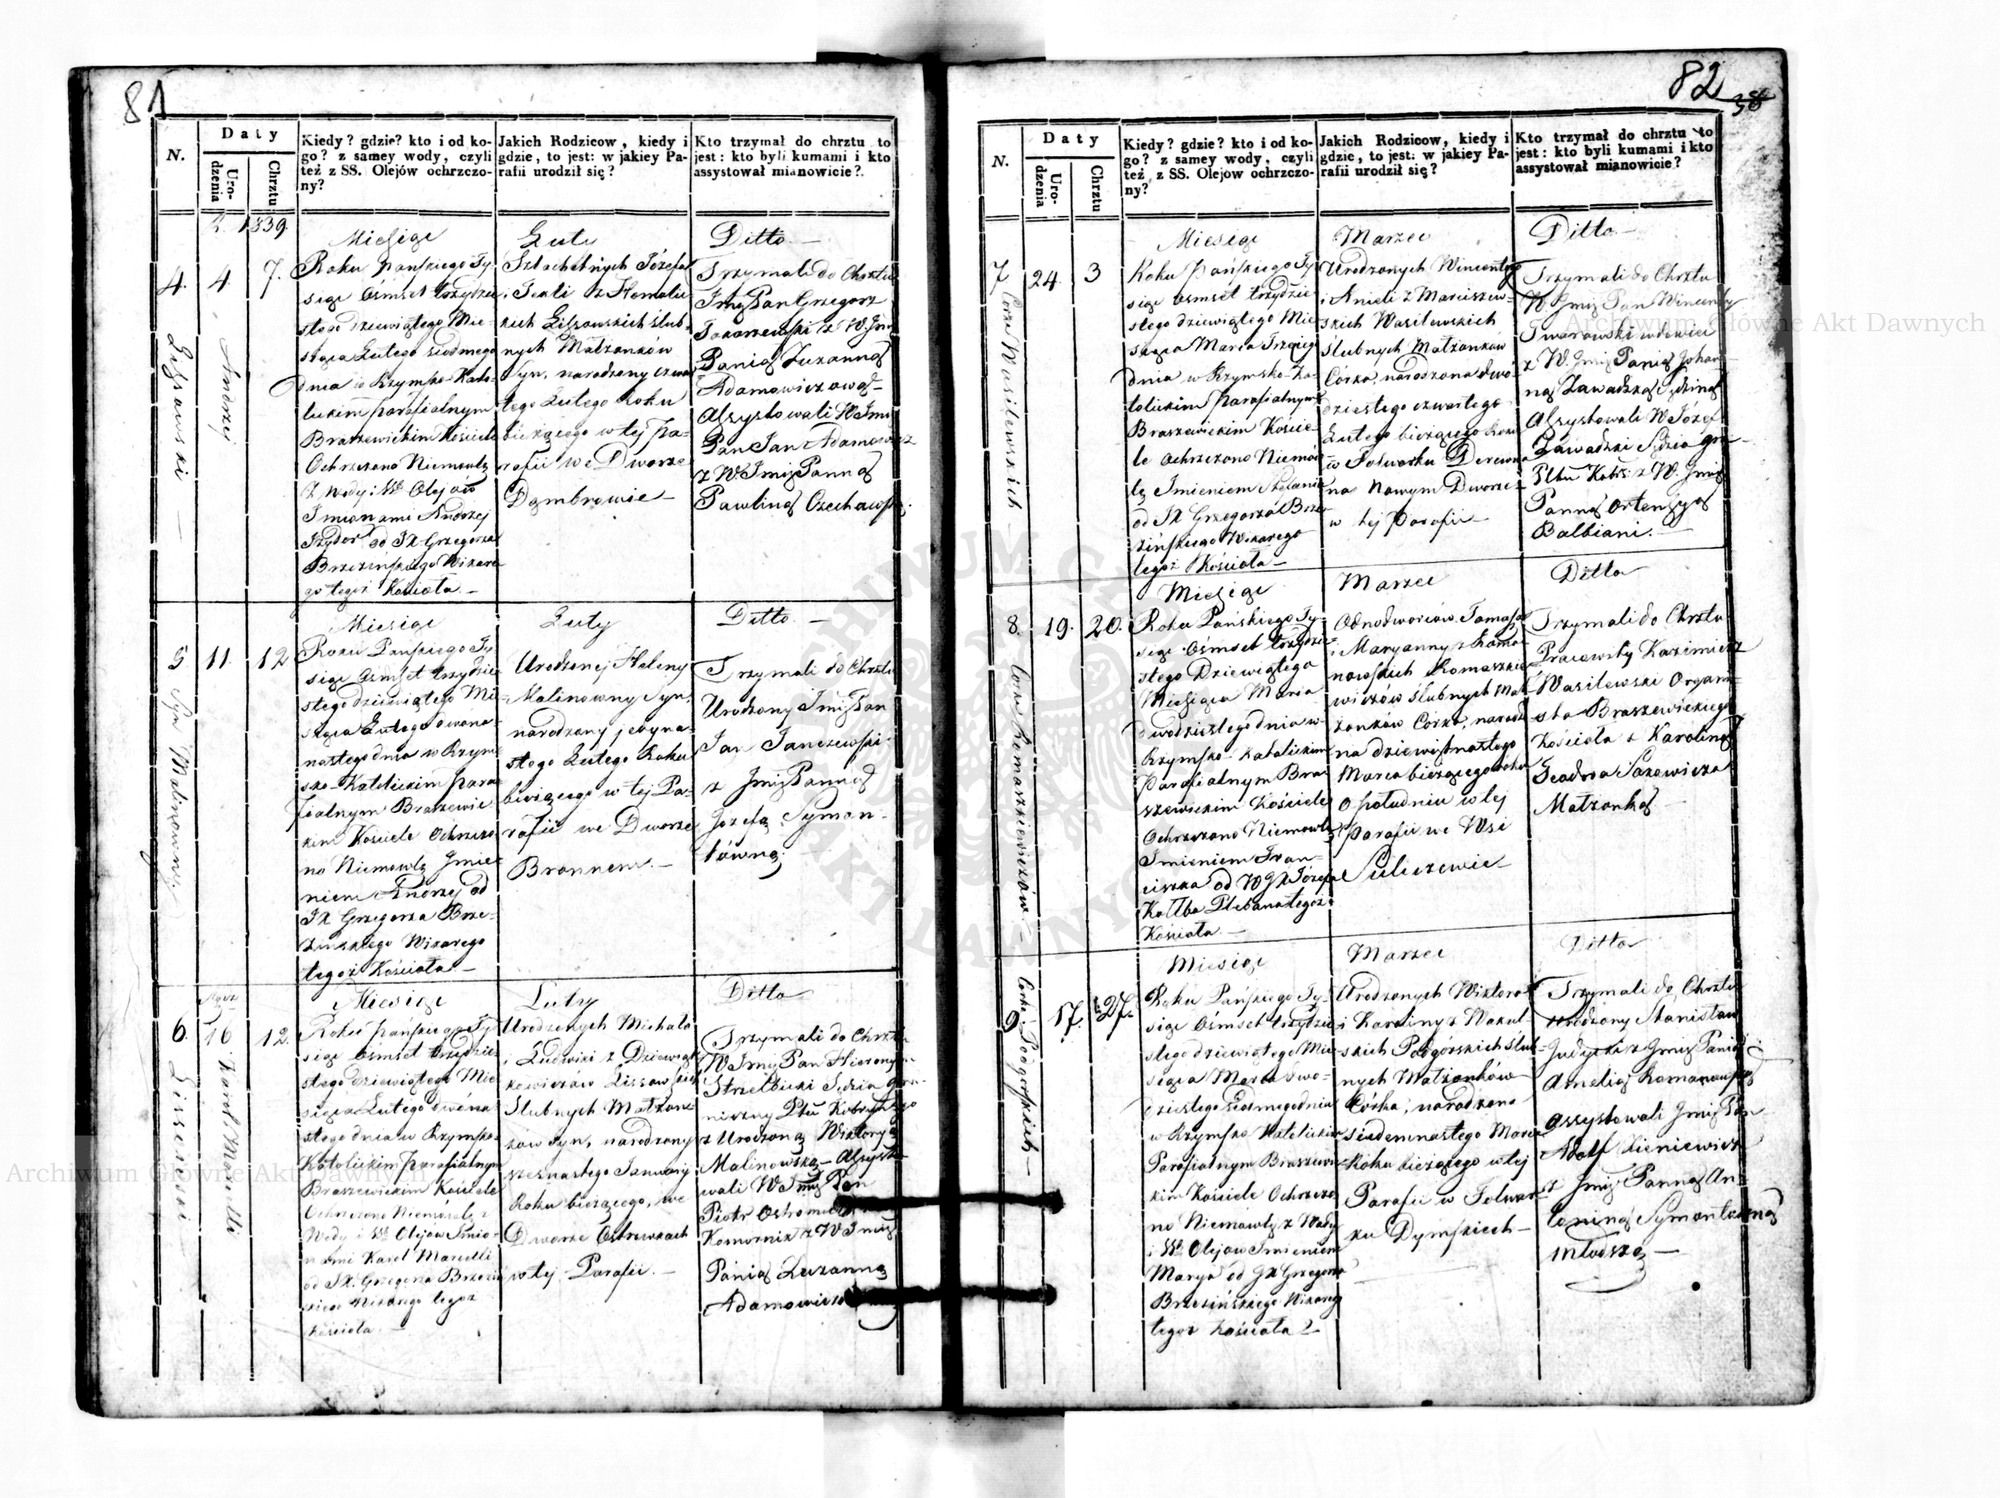 81
N.
Daty
Uro-
dzenia
Chrztu
Kiedy? gdzie? kto i od ko-
go? z samey wody, czyli
też z SS. Olejów ochrzczo-
ny?
Jakich Rodziców, kiedy i
gdzie, to jest: w jakiey Pa-
rafii urodził się?
Kto trzymał do chrztu to
jest: kto byli kumami i kto
assystował mianowicie?
1839
Miesiąc
Luty
Ditto
4.
4
7.
Roku Pańskiego Ty-
siąc Ośmset trzydzie
stego dziewiątego Mie-
siąca Lutego siodmego
dnia w Rzymsko-Kato-
lickim parafialnym
Braszewickim Kościele
Ochrzczono Niemowlę
z wody i SS. Olejów
Imionami Andrzej
Izydor od JX Grzegorza
Brzezinskiego Wikare-
go tegoż Kościoła
Szlachetnych Józefa
i Tekli z
kich Lissowskich ślub-
nych Małżonków
Syn, narodzony czwar
tego Lutego Roku
bieżącego w tej Pa-
rafii we Dworze
Dąmbrowie
Trzymali do Chrztu
Jmć Pan Grzegorz
z W Jmć
Panią Zuzanną
Adamowiczową
Assystowali W Jmć
Pan Jan Adamowicz
z W. Jmć Panną
Pauliną Czechowską
Andrzej
Miesiąc
Luty
Ditto
5
11.
12
Roku Pańskiego Ty
siąc Ośmset trzydzie
stego dziewiątego Mie
siąca Lutego dwuna-
nastego dnia w Rzym
sko-Katolickim para
fialnym Braszewic
kim Kościele Ochrzczo
no Niemowlę Imie-
niem Andrzej od
JX Grzegorza Brze-
zinskiego Wikarego
tegoż Kościoła
Urodzonej Heleny
Malinowny Syn,
narodzony jedyna-
stego Lutego Roku
bieżącego w tej Pa-
rafii we Dworze
Brannem
Trzymali do Chrztu
Urodzony Jmć Pan
Jan Janczewski
z Jmć Panną
Józefą Symon-
tówną
Miesiąc
Luty
Ditto
6.
16
12.
Roku Pańskiego Ty
siąc Ośmset trzydzie
stego dziewiątego Mie
siąca Lutego dwuna
stego dnia w Rzymsko
Katolickim parafialnym
Braszewickim Kościele
Ochrzczono Niemowlę z
Wody i SS. Olejów Imio-
nami Karol Marcelli
od JX. Grzegorza Brzezin
skiego Wikarego tegoż
Kościoła
Urodzonych Michała
i Ludwiki z
Lissowskich
Ślubnych Małżon
ków Syn, narodzony
szesnastego Januarij
Roku bieżącego, we
Dworze Ostrowkach
w tej Parafii
Trzymali do Chrztu
W Jmć Pan Hieronym
Strzelbicki Sędzia Gra-
niczny Pttu Kobryńskiego
z Urodzoną Wiktoryą
Malinowską Assysto
wali W Jmć Pan
Piotr
Komornik z W Jmć
Panią Zuzanną
Karol Marcelli
Lissowski
82
38
N.
Daty
Uro-
dzenia
Chrztu
Kiedy? gdzie? kto i od ko-
go? z samey wody, czyli
też z SS. Olejów ochrzczo-
ny?
Jakich Rodziców, kiedy i
gdzie, to jest: w jakiey Pa-
rafii urodził się?
Kto trzymał do chrztu to
jest: kto byli kumami i kto
assystował mianowicie?
Miesiąc
Marzec
Ditto
7
24.
3
Córka Wasilewskich
Roku Pańskiego Ty-
siąc Ośmset trzydzie
stego dziewiątego Mie
siąca Marca trzeciego
dnia w Rzymsko-Ka-
tolickim Parafialnym
Braszewickim Koście-
le Ochrzczono Niemow
lę Imieniem Stefania
od JX Grzegorza Brze
zińskiego Wikarego
tegoż Kościoła
Urodzonych Wincentego
i Anieli z Maciszew-
skich Wasilewskich
Ślubnych Małżonków
Córka, narodzona dwu-
dziestego czwartego
Lutego bieżącego Roku
w Folwarku Derewna
na Nowym Dworze
w tej Parafii
Trzymali do Chrztu
W Jmć Pan Wincenty
Twarowski
z W. Jmć Panią Johan-
ną Zawadzką Sędziną
Assystowali W Józef
Zawadzki Sędzia gra-
Pttu Kobr: z W. Jmć
Panną Ortensyą
Balbiani.
Miesiąc
Marzec
Ditto
8.
19.
20.
Córka Tomaszkiewiczów
Roku Pańskiego Ty-
siąc Ośmset trzydzie
stego Dziewiątego
Miesiąca Marca
dwudziestego dnia w
Rzymsko Katolickim
Parafialnym Bra-
szewickim Kościele
Ochrzczono Niemowlę
Imieniem Fran-
ciszka od W JX Józefa
Kołba Plebana tegoż
Kościoła
Odnodworców Tomasza
i Maryanny z Roma-
nowskich Tomaszkie
wiczów ślubnych Mał
żonków Córka, narodzo
na dziewiętnastego
Marca bieżącego roku
o południu w tej
Parafii we Wsi
Suliczewie
Trzymali do Chrztu
Pracowity Kazimierz
Wasilewski Organi-
sta Braszewickiego
Kościoła z Karoliną
Małżonką
Miesiąc
Marzec
Ditto
9
17.
27.
Córka Podgórskich
Roku Pańskiego Ty-
siąc Ośmset trzydzie
stego dziewiątego Mie
siąca Marca dwu-
dziestego siódmego dnia
w Rzymsko Katolickim
Parafialnym Braszewi
ckim Kościele Ochrzczo
no Niemowlę z Wody
i SS. Olejów Imieniem
Marya od JX Grzegorza
Brzezińskiego Wikarego
tegoż Kościoła
Urodzonych Wiktora
i Karoliny z Wakul
skich Podgórskich Ślub-
nych Małżonków
Córka, narodzona
siedemnastego Marca
Roku bieżącego w tej
Parafii w Folwar-
ku Dymskiech
Trzymali do Chrztu
Urodzony Stanisław
z Jmć Panią
Amelią Romanowską
Assystowali Jmć Pan
Adolf Kieniewicz
z Jmć Panną An-
toniną Symontówną
młodszą
Archiwum Główne Akt Dawnych
Archiwum Główne Akt Dawnych